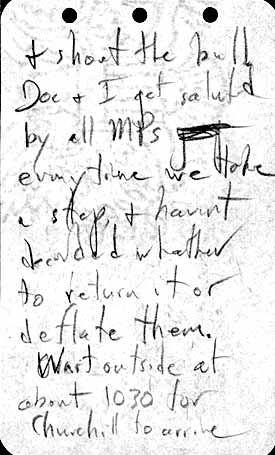 & shoot the bull
Doc & I get salutd
by all MPs
everytime we take
a step, & havent
decided whather
to return it or
deflate them.
Wart outside at
about 1030 for
Churchill to arrive